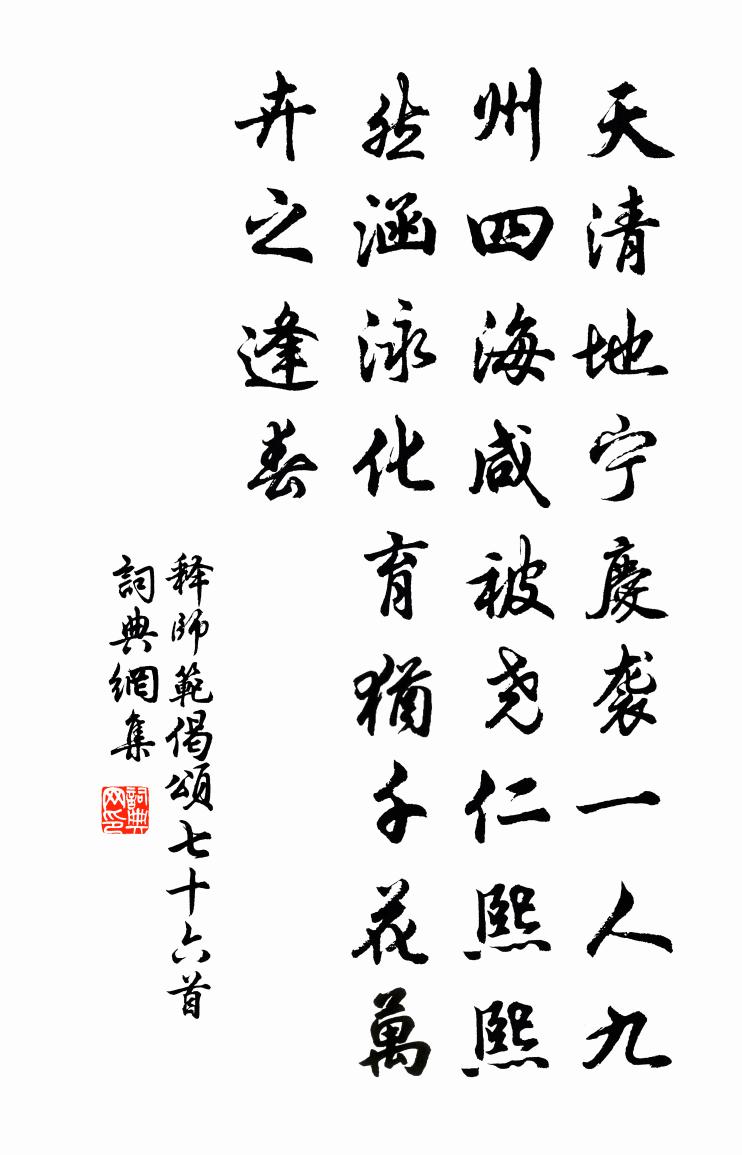 天清地宁慶袭一人九
州四海咸被尧仁熙熙
然涵泳化育犹千花萬
卉之逢春
释師範偈頌七十六首
詞典網集
詞典网印